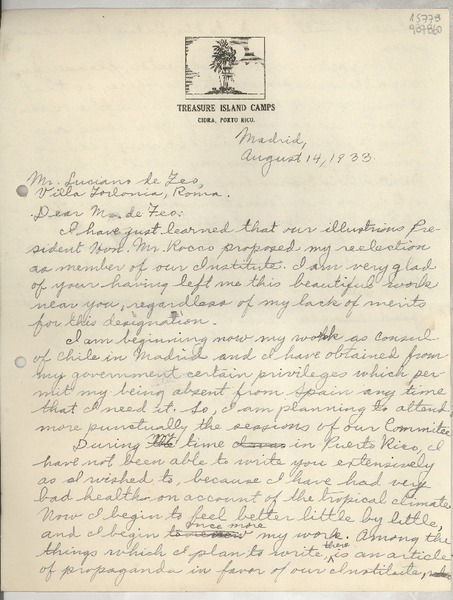 15778
987860
TREASURE ISLAND CAMPS
CIDRA, PORTO RICO.
Madrid,
August 14, 1933
Mr. Luciano de Feo,
Villa Torlonia, Roma.
Dear Mr. de Feo:
I have just learned that our illustrious Pre-
sident Hon. Mr. Rocco proposed my reelection
as member of our Institute. I am very glad
of your having left me this beautiful work
near you, regardless of my lack of merits
for this designation.
I am beginning now my work as consul
of Chile in Madrid and I have obtained from
my government certain privileges which per-
mit my being absent from Spain any time
that I need it. So, I am planning to attend
more punctually the sessions of our Committee
During the time I was in Puerto Rico, I
have not been able to write you extensively
as I wished to, because I have had very
bad health on account of the tropical climate.
Now I begin to feel better little by little,
and I begin once more my work. Among the
things which I plan to write, there is an article
of propaganda in favor of our Institute,